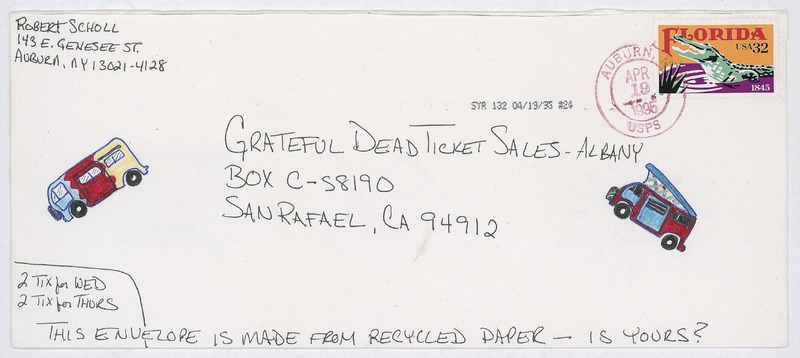 ROBERT SCHOLL
143 E. GENESEE ST.
AUBURN, NY 13021-4128
FLORIDA
USA 32
1845
AUBURN,
APR
19
1995
USPS
SYR 132 04/19/95 #24
GRATEFUL DEAD TICKET SALES - ALBANY
BOX C-S8190
SAN RAFAEL, CA 94912
2 TIX for WED
2 TIX for THURS
THIS ENVELOPE IS MADE FROM RECYCLED PAPER — IS YOURS?